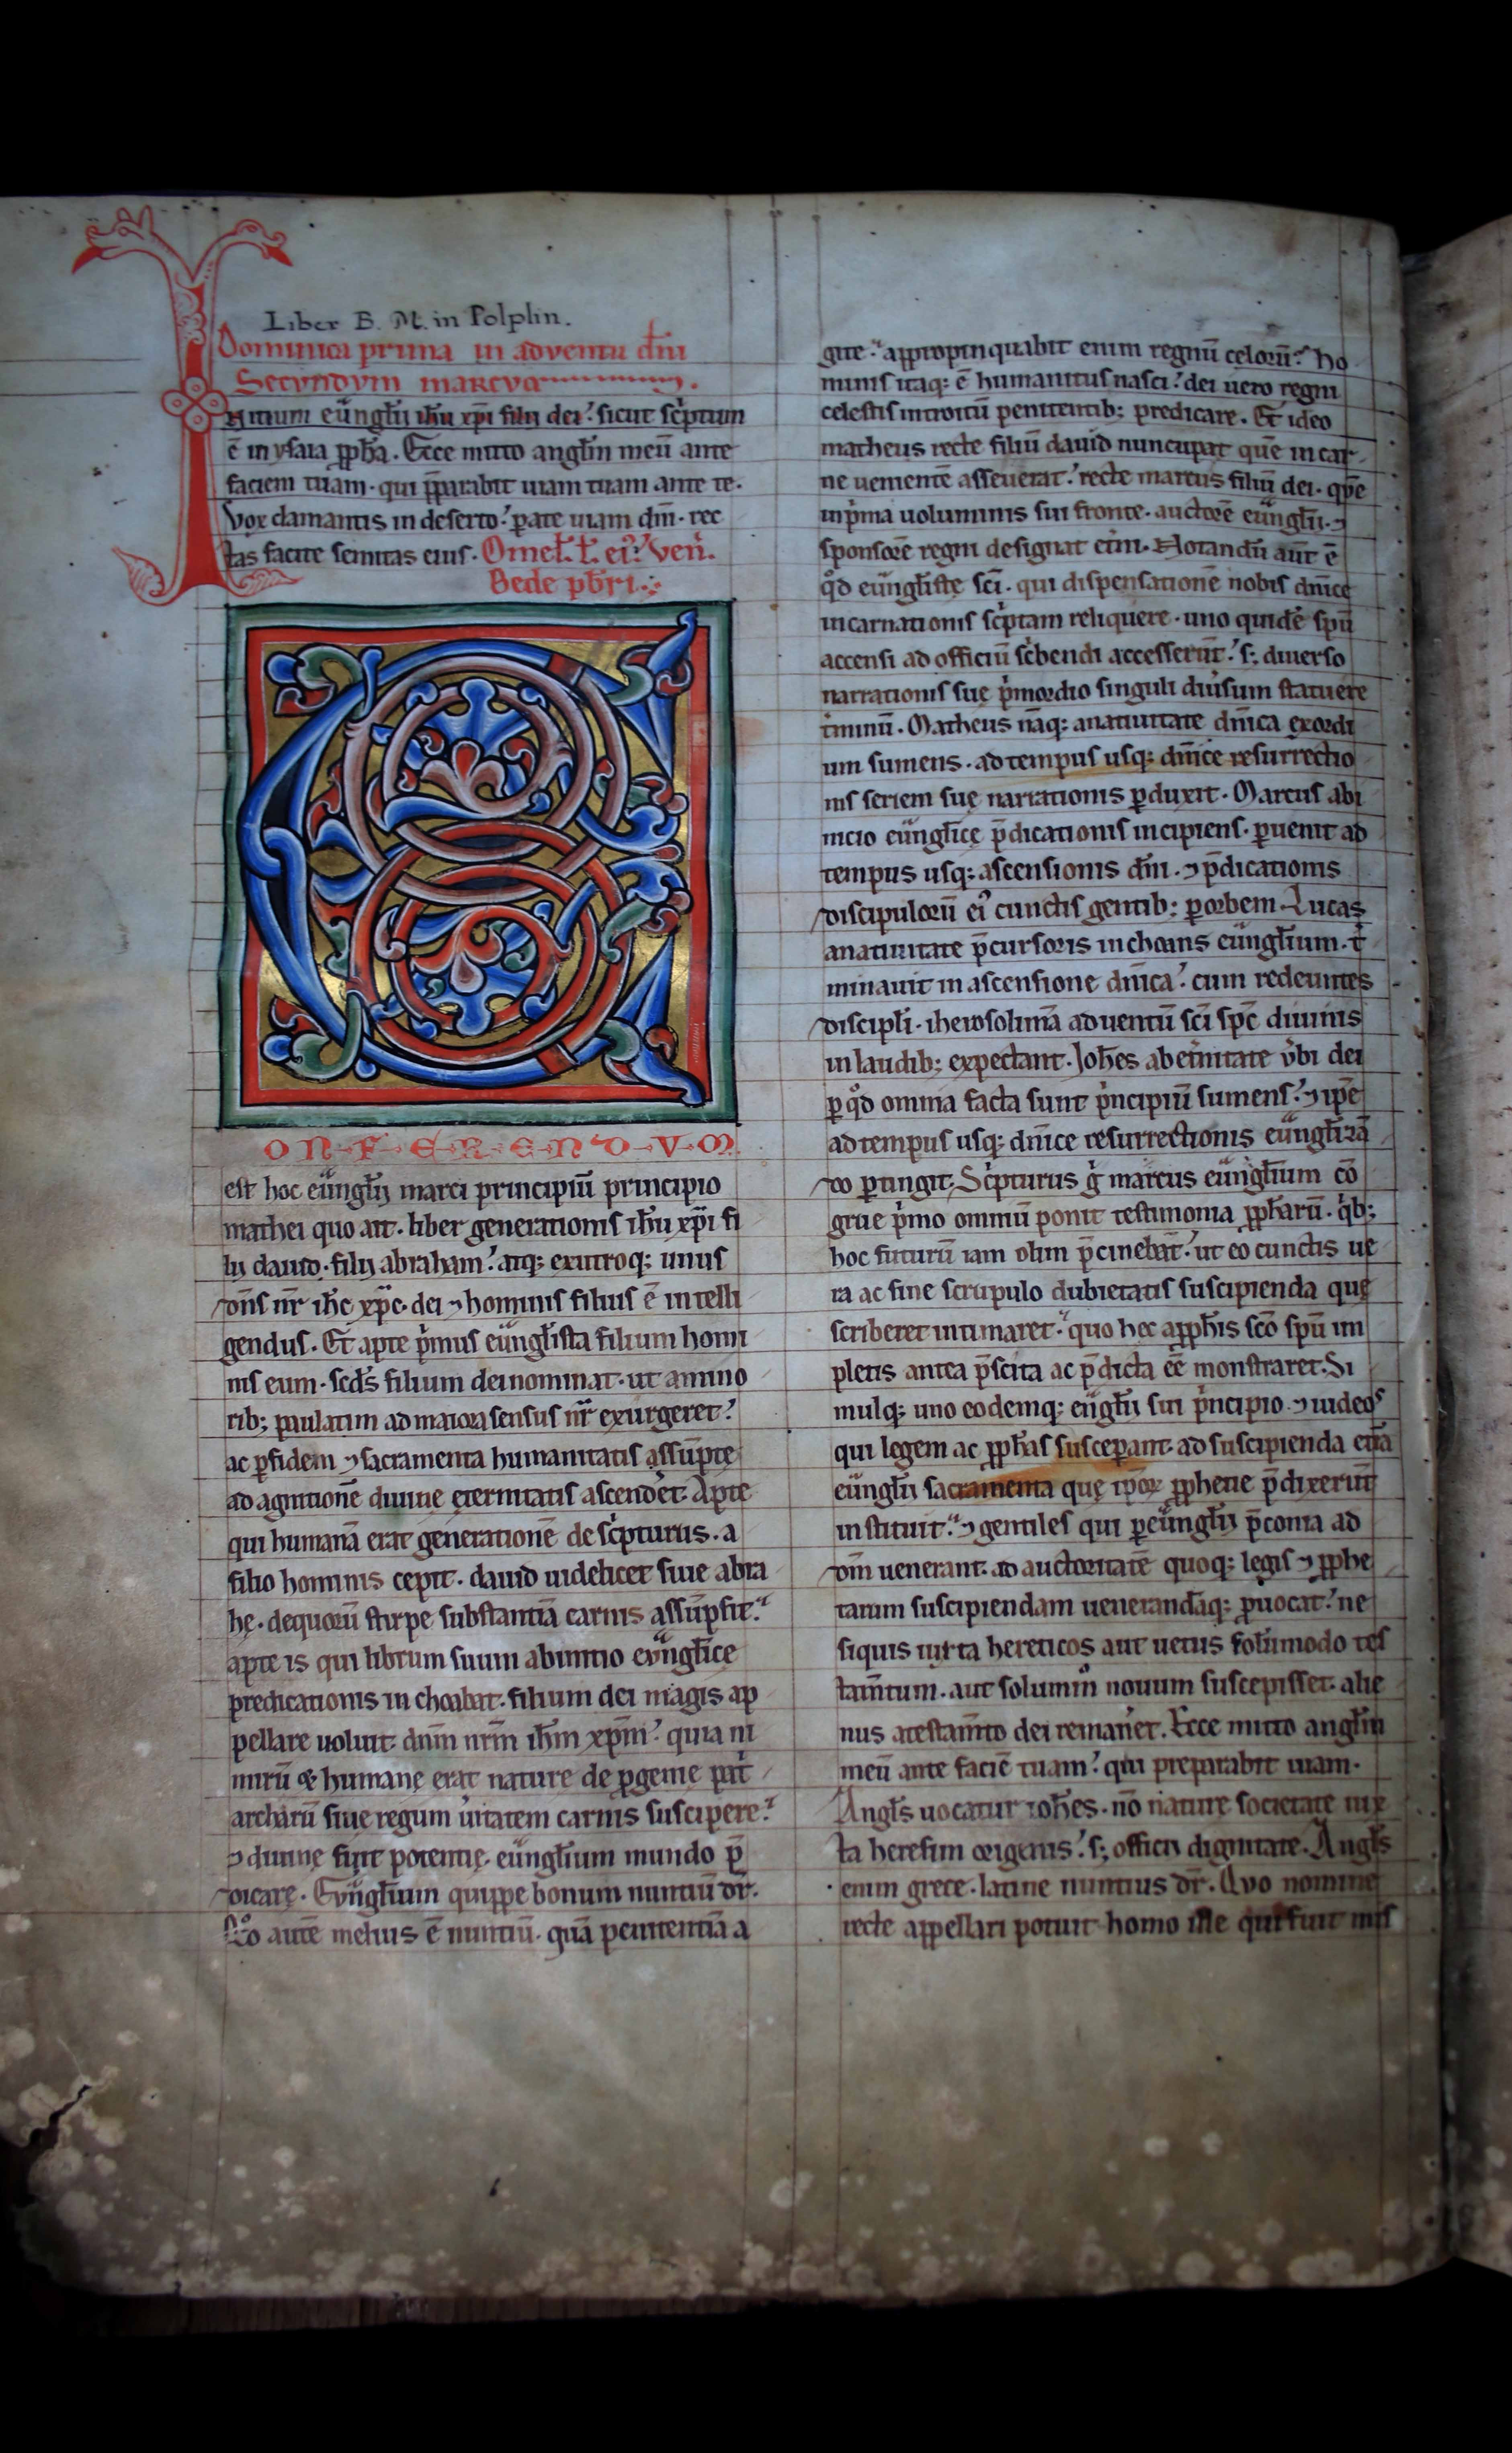 Liber B. M. in Polplin.
Dominica prima in adventu dñi
Secundum marcum.
INitium eüngľij ihũ xp̃i filij dei. sicut sc̓ptum
ẽ in ysaia ꝓph̃a. Ecce mitto angľm meũ ante
faciem tuam. qui p̃parabit uiam tuam ante te.
Vox clamantis in deserto. ꝑate uiam dñi. rec
tas facite semitas eius. Omeľ. ľ. eĩ. Veñ.
Bede pb̃ri.
CONFERENDVM
est hoc eüngľij marci principiũ principio
mathei quo ait. liber generationis ihũ xp̃i fi
lij dauid. filij abraham. atq; ex utroq; unus
dñs nr̃ ihc̃ xp̃c. dei ⁊ hominis filius ẽ intelli
gendus. Et apte p̓mus eüngľista filium homi
nis eum. scďs filium dei nominat. ut a mino
rib; paulatim ad maiora sensus nr̃ exurgeret.
ac ꝑ fidem ⁊ sacramenta humanitatis assũpte
ad agnitionẽ diuine ęternitatis ascendet. Apte
qui humanã erat generationẽ desc̓pturus. a
filio hominis cepit. dauid uidelicet siue abra
hę. de quorũ stirpe substantiã carnis assũpsit.
apte is qui librum suum ab initio eüngľice
predicationis inchoabat. filium dei magis ap
pellare uoluit dñm nr̃m ihm̃ xp̃m. quia ni
mirũ & humanę erat nature de ꝓgenie pat̓
archarũ siue regum u̓itatem carnis suscipere.
⁊ diuinę fuit potentię. eüngľium mundo p̃
dicare. Eüngľium quippe bonum nuntiũ dr̃.
Qđ autẽ melius ẽ nuntiũ. quã penitentiã a
gite. appropinquabit enim regnũ celorũ. ho
minis itaq; ẽ humanitus nasci. dei uero regni
celestis introitũ penitentib; predicare. Et ideo
matheus recte filiũ dauid nuncupat quẽ in car
ne uementẽ asseuerat. recte marcus filiũ dei. qp̃e
in p̓ma uoluminis sui fronte. auctorẽ eüngľij. ⁊
sponsorẽ regni designat et̓ni. Notandũ aut̃ ẽ
qđ eüngľistę sc̃i. qui dispensationẽ nobis dñice
incarnationis sc̓ptam reliquere. uno quidẽ spũ
accensi ad officiũ sc̓bendi accesserũt. s; diuerso
narrationis suę p̓mordio singuli diu̓sum statuere
t̓minũ. Matheus nãq; a natiuitate dñica exordi
um sumens. ad tempus usq; dñice resurrectio
nis seriem suę narrationis ꝑduxit. Marcus ab i
nicio eüngľicę p̃dicationis incipiens. ꝑuenit ad
tempus usq; ascensionis dñi. ⁊ p̃dicationis
discipulorũ ei᷒ cunctis gentib; ꝑ orbem. Lucas
a natiuitate p̃cursoris inchoans eüngľium. t̓
minauit in ascensione dñica. cum redeuntes
discipľi. iherosolimã aduentũ sc̃i spc̃ diuinis
in laudib; expectant. Joh̃es ab et̓nitate u̓bi dei
ꝑ qđ omnia facta sunt p̓ncipiũ sumens. ⁊ ip̃e
ad tempus usq; dñice resurrectionis eüngľizã
do ꝑtingit. Sc̓pturus g̓ marcus eüngľium cõ
grue p̓mo omniũ ponit testimonia ꝓph̃arũ. q̓b;
hoc futurũ iam olim p̃cinebãt. ut eo cunctis ue
ra ac sine scrupulo dubietatis suscipienda quę
scriberet intimaret. quo hec a ꝓph̃is sc̃o spũ im
pletis antea p̃scita ac p̃dicta eẽ monstraret. Si
mulq; uno eodemq; eüngľij sui p̓ncipio. ⁊ iudeos
qui legem ac ꝓph̃as susceperant. ad suscipienda etiã
eüngľij sacramenta quę ip̃oꝝ ꝓphetie p̃dixerũt
instituit. ⁊ gentiles qui ꝑ eüngľij p̃conia ad
dñm uenerant. ad auctoritatẽ quoq; legis ⁊ ꝓphe
tarum suscipiendam uenerandãq; ꝓuocat. ne
siquis iuxta hereticos aut uetus soľummodo tes
tam̃tum. aut solummo nouum suscepisset. alie
nus a testam̃to dei remanet. Ecce mitto angľm
meũ ante faciẽ tuam. qui preparabit uiam.
Angľs uocatur ioh̃es. nõ nature societate iux
ta heresim origenis. s; officii dignitate. Angľs
enim grece. latine nuntius dr̃. Quo nomine
recte appellari potuit homo ille qui fuit mis